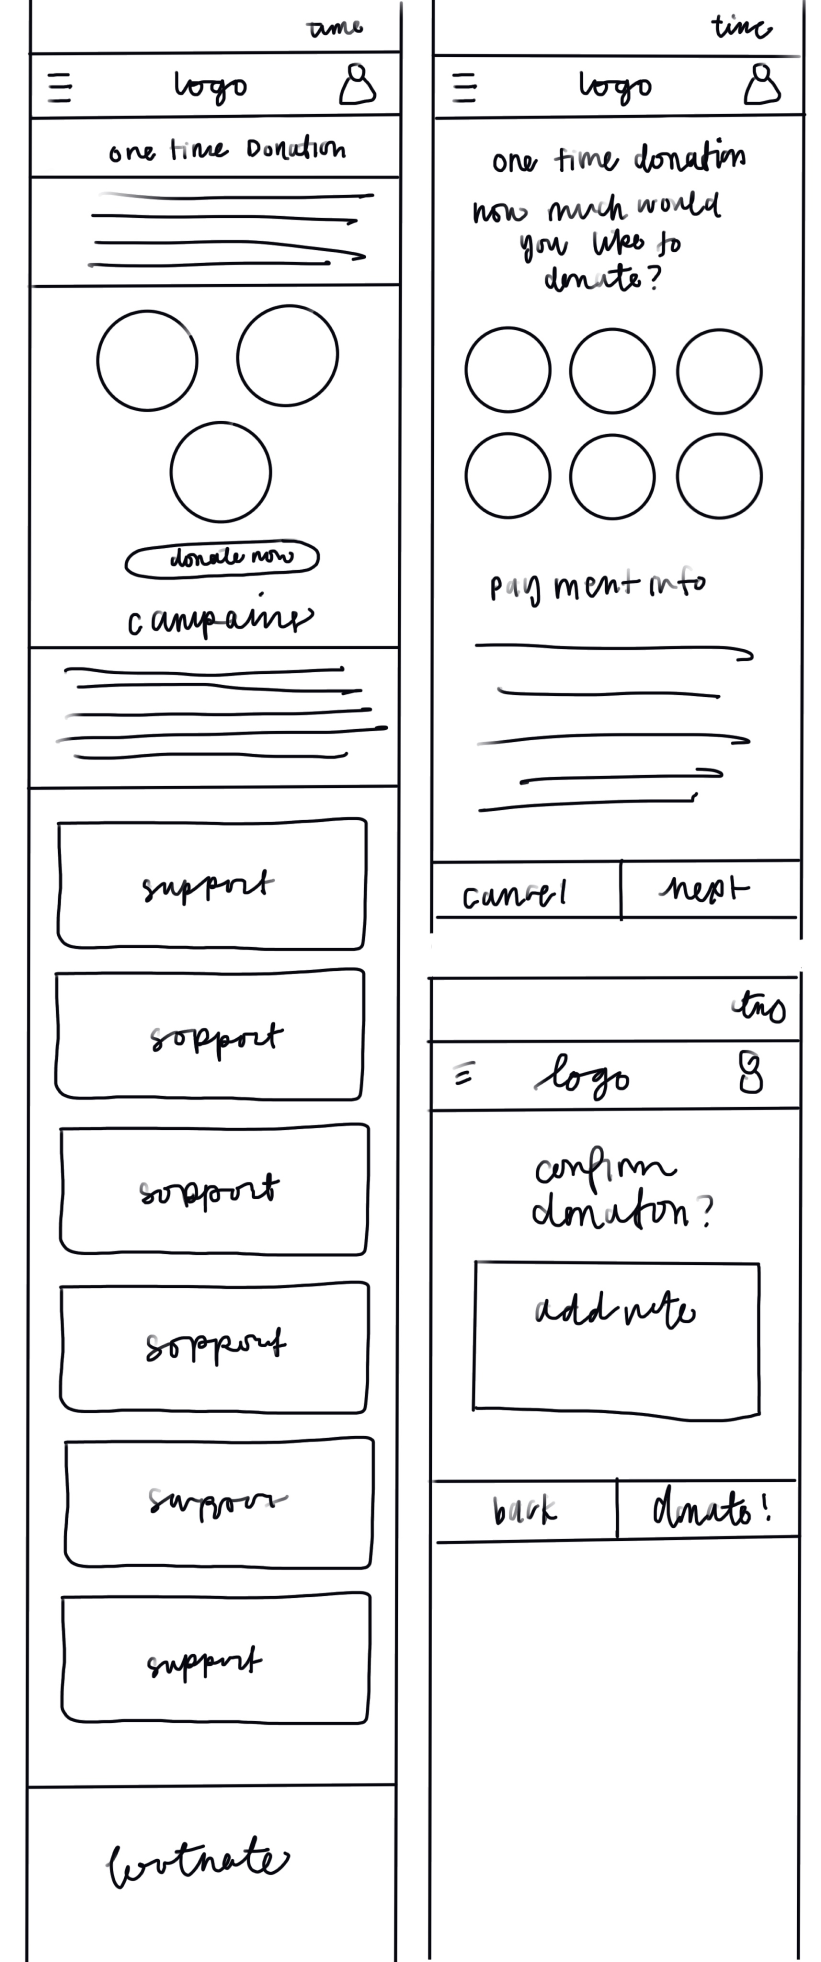 time
logo
one time Donation
donate now
campains
support
support
support
support
support
support
footnote
time
logo
one time donation
how much would
you like to
donate?
payment info
cancel
next
time
logo
confirm
donation?
add note
back
donate!